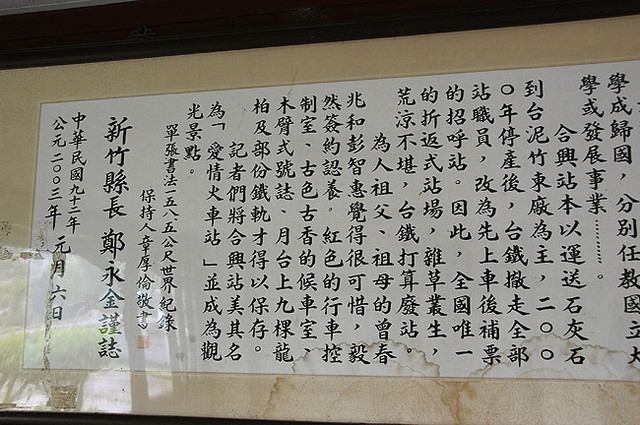 學成歸國，分別任教國立大
學或發展事業………。
合興站本以運送石灰石
到台泥竹東廠為主，二○○
○年停產後，台鐵撤走全部
站職員，改為先上車後補票
的招呼站。因此，全國唯一
的折返式站場，雜草叢生，
荒涼不堪，台鐵打算廢站。
為人祖父、祖母的曾春
兆和彭智惠覺得很可惜，毅
然簽約認養。紅色的行車控
制室、古色古香的候車室、
木臂式號誌、月台上九棵龍
柏及部份鐵軌才得以保存。
記者們將合興站美其名
為「愛情火車站」並成為觀
光景點。
單張書法一五八五公尺世界紀錄
保持人辛厚倫敬書
新竹縣長 鄭永金謹誌
中華民國九十二年
公元二○○三年 元月六日